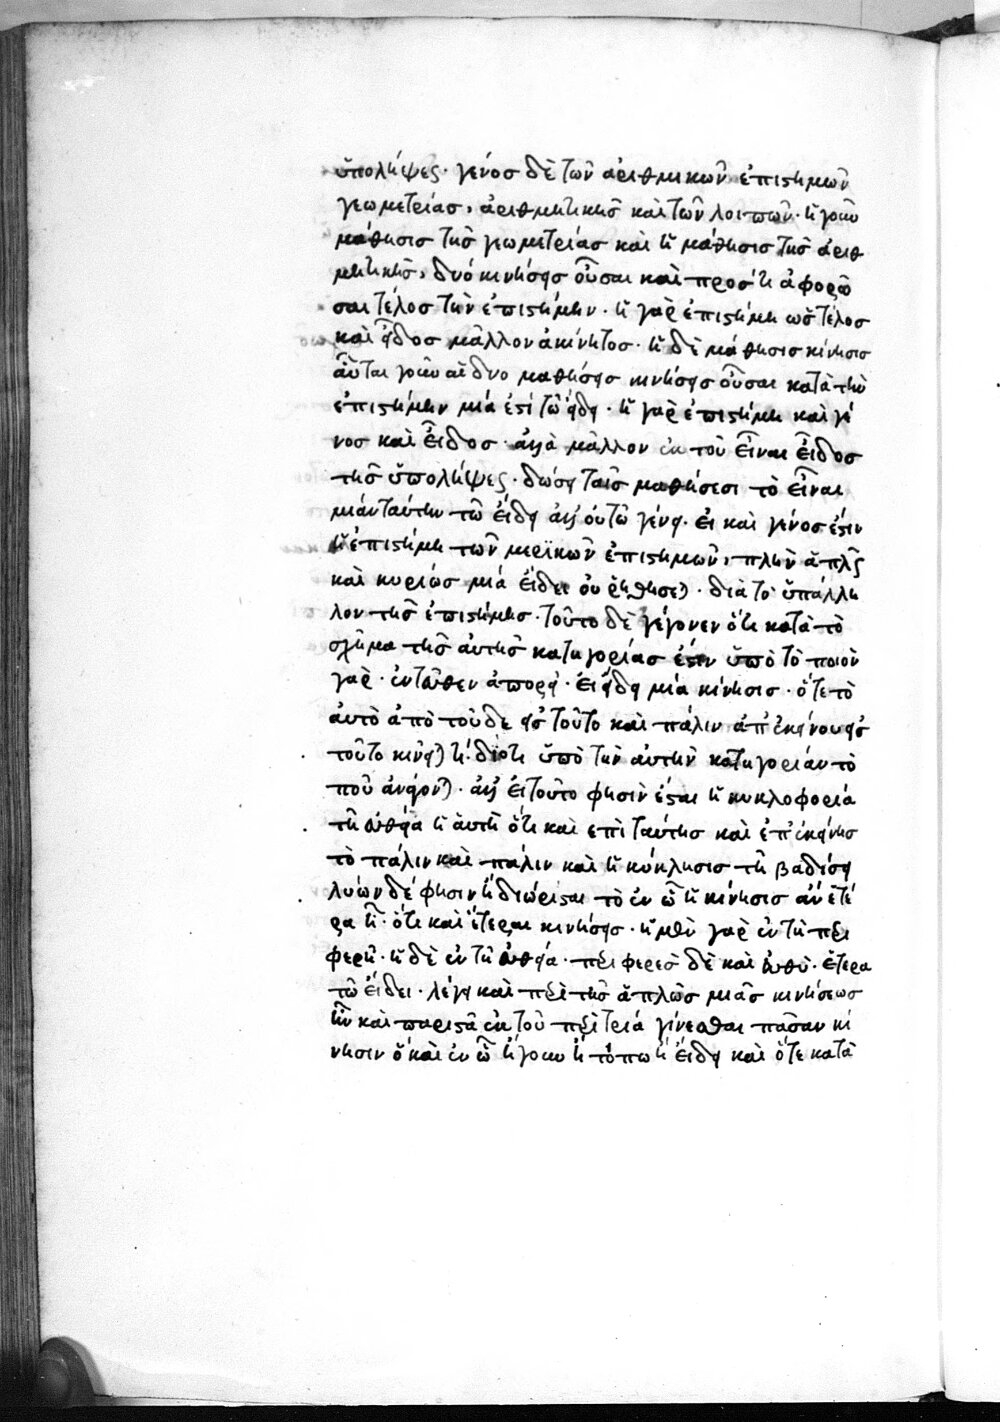 ὑπολήψεως· γένος δὲ τῶν ἀριθμικῶν ἐπιστημῶν
γεωμετρίας, ἀριθμητικῆς καὶ τῶν λοιπῶν· ἡ γοῦν
μάθησις τῆς γεωμετρίας καὶ ἡ μάθησις τῆς ἀριθ
μητικῆς, δύο κινήσεις οὖσαι καὶ πρὸς ἓ ἀφορῶ
σαι τέλος τὴν ἐπιστήμην· ἡ γὰρ ἐπιστήμη ὡς τέλος
καὶ εἶδος μᾶλλον ἀκίνητος· ἡ δὲ μάθησις κίνησις
αὗται γοῦν αἱ δύο μαθήσεις κινήσεις οὖσαι κατὰ τὴν
ἐπιστήμην μία ἐστὶ τῷ εἴδει· ἡ γὰρ ἐπιστήμη καὶ γέ
νος καὶ εἶδος· ἀλλὰ μᾶλλον ἐκ τοῦ εἶναι εἶδος
τῆς ὑπολήψεως· δώσει ταῖς μαθήσεσι τὸ εἶναι
μίαν ταύτην τῷ εἴδει ἀλλ' οὐ τῷ γένει· εἰ καὶ γένος ἐστὶν
ἡ ἐπιστήμη τῶν μερικῶν ἐπιστημῶν, πλὴν ἁπλῶς
καὶ κυρίως μία εἴδει οὐ ῥηθήσεται· διὰ τὸ ὑπάλλη
λον τῆς ἐπιστήμης· τοῦτο δὲ γέγονεν ὅτι κατὰ τὸ
σχῆμα τῆς αὐτῆς κατηγορίας ἐστὶν ὑπὸ τὸ ποιὸν
γὰρ· ἐντεῦθεν ἀπορεῖ· εἰ εἴδει μία κίνησις· ὅτε τὸ
αὐτὸ ἀπὸ τοῦδε εἰς τοῦτο καὶ πάλιν ἀπ' ἐκείνου εἰς
τοῦτο κινεῖται διότι ὑπὸ τὴν αὐτὴν κατηγορίαν τὸ
ποῦ ἀνάγονται· ἀλλ' εἰ τοῦτο φησὶν ἔσται ἡ κυκλοφορία
τῇ εὐθείᾳ ἡ αὐτὴ ὅτι καὶ ἐπὶ ταύτης καὶ ἐπ' ἐκείνης
τὸ πάλιν καὶ πάλιν καὶ ἡ κύκλησις τῇ βαδίσει
λύων δέ φησιν ἢ διώρισται τὸ ἐν ᾧ ἡ κίνησις ἂν ἑτέ
ρα ᾖ· ὅτι καὶ ἕτεραι κινήσεις· ἡ μὲν γὰρ ἐν τῇ περι
φερεῖ· ἡ δὲ ἐν τῇ εὐθείᾳ· περιφερὲς δὲ καὶ εὐθὺ· ἕτερα
τῷ εἴδει· λέγει καὶ περὶ τῆς ἁπλῶς μιᾶς κινήσεως
ἣν καὶ παριστᾶ ἐκ τοῦ περὶ τρία γίνεσθαι πᾶσαν κί
νησιν ὃ καὶ ἐν ᾧ ἤγουν ἢ τόπῳ ἢ εἴδει καὶ ὅτε κατὰ